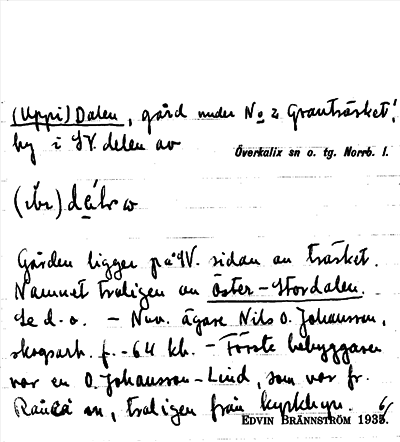 (Uppi) Dalen, gård under No 2 Granträsket,
by i SV. delen av
Överkalix sn o. tg. Norrb. l.
Gården ligger på SV. sidan an träsket.
Namnet troligen an Öster-Stordalen.
Se d.o. – Nuv. ägare Nils O. Johansson,
skogsarb. f. -64 kh. – Förste bebyggaren
var en O. Johansson-Lind, som var fr.
an, troligen från kyrkbyn.
EDVIN BRÄNNSTRÖM 1935.